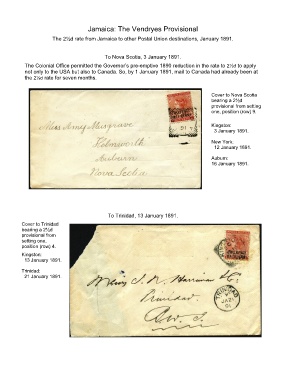 Jamaica: The Vendryes Provisional
The 2½d rate from Jamaica to other Postal Union destinations, January 1891.
To Nova Scotia, 3 January 1891.
The Colonial Office permitted the Governor's pre-emptive 1890 reduction in the rate to 2½d to apply
not only to the USA but also to Canada. So, by 1 January 1891, mail to Canada had already been at
the 2½d rate for seven months.
Cover to Nova Scotia
bearing a 2½d
provisional from setting
one, position (row) 9.
Kingston:
3 January 1891.
New York:
12 January 1891.
Auburn:
16 January 1891.
Miss Amy Musgrave
Auburn
Nova Scotia
To Trinidad, 13 January 1891.
Cover to Trinidad
bearing a 2½d
provisional from
setting one,
position (row) 4.
Kingston:
13 January 1891.
Trinidad:
21 January 1891.
Trinidad
B.W.I.
TRINIDAD
JA 21
91